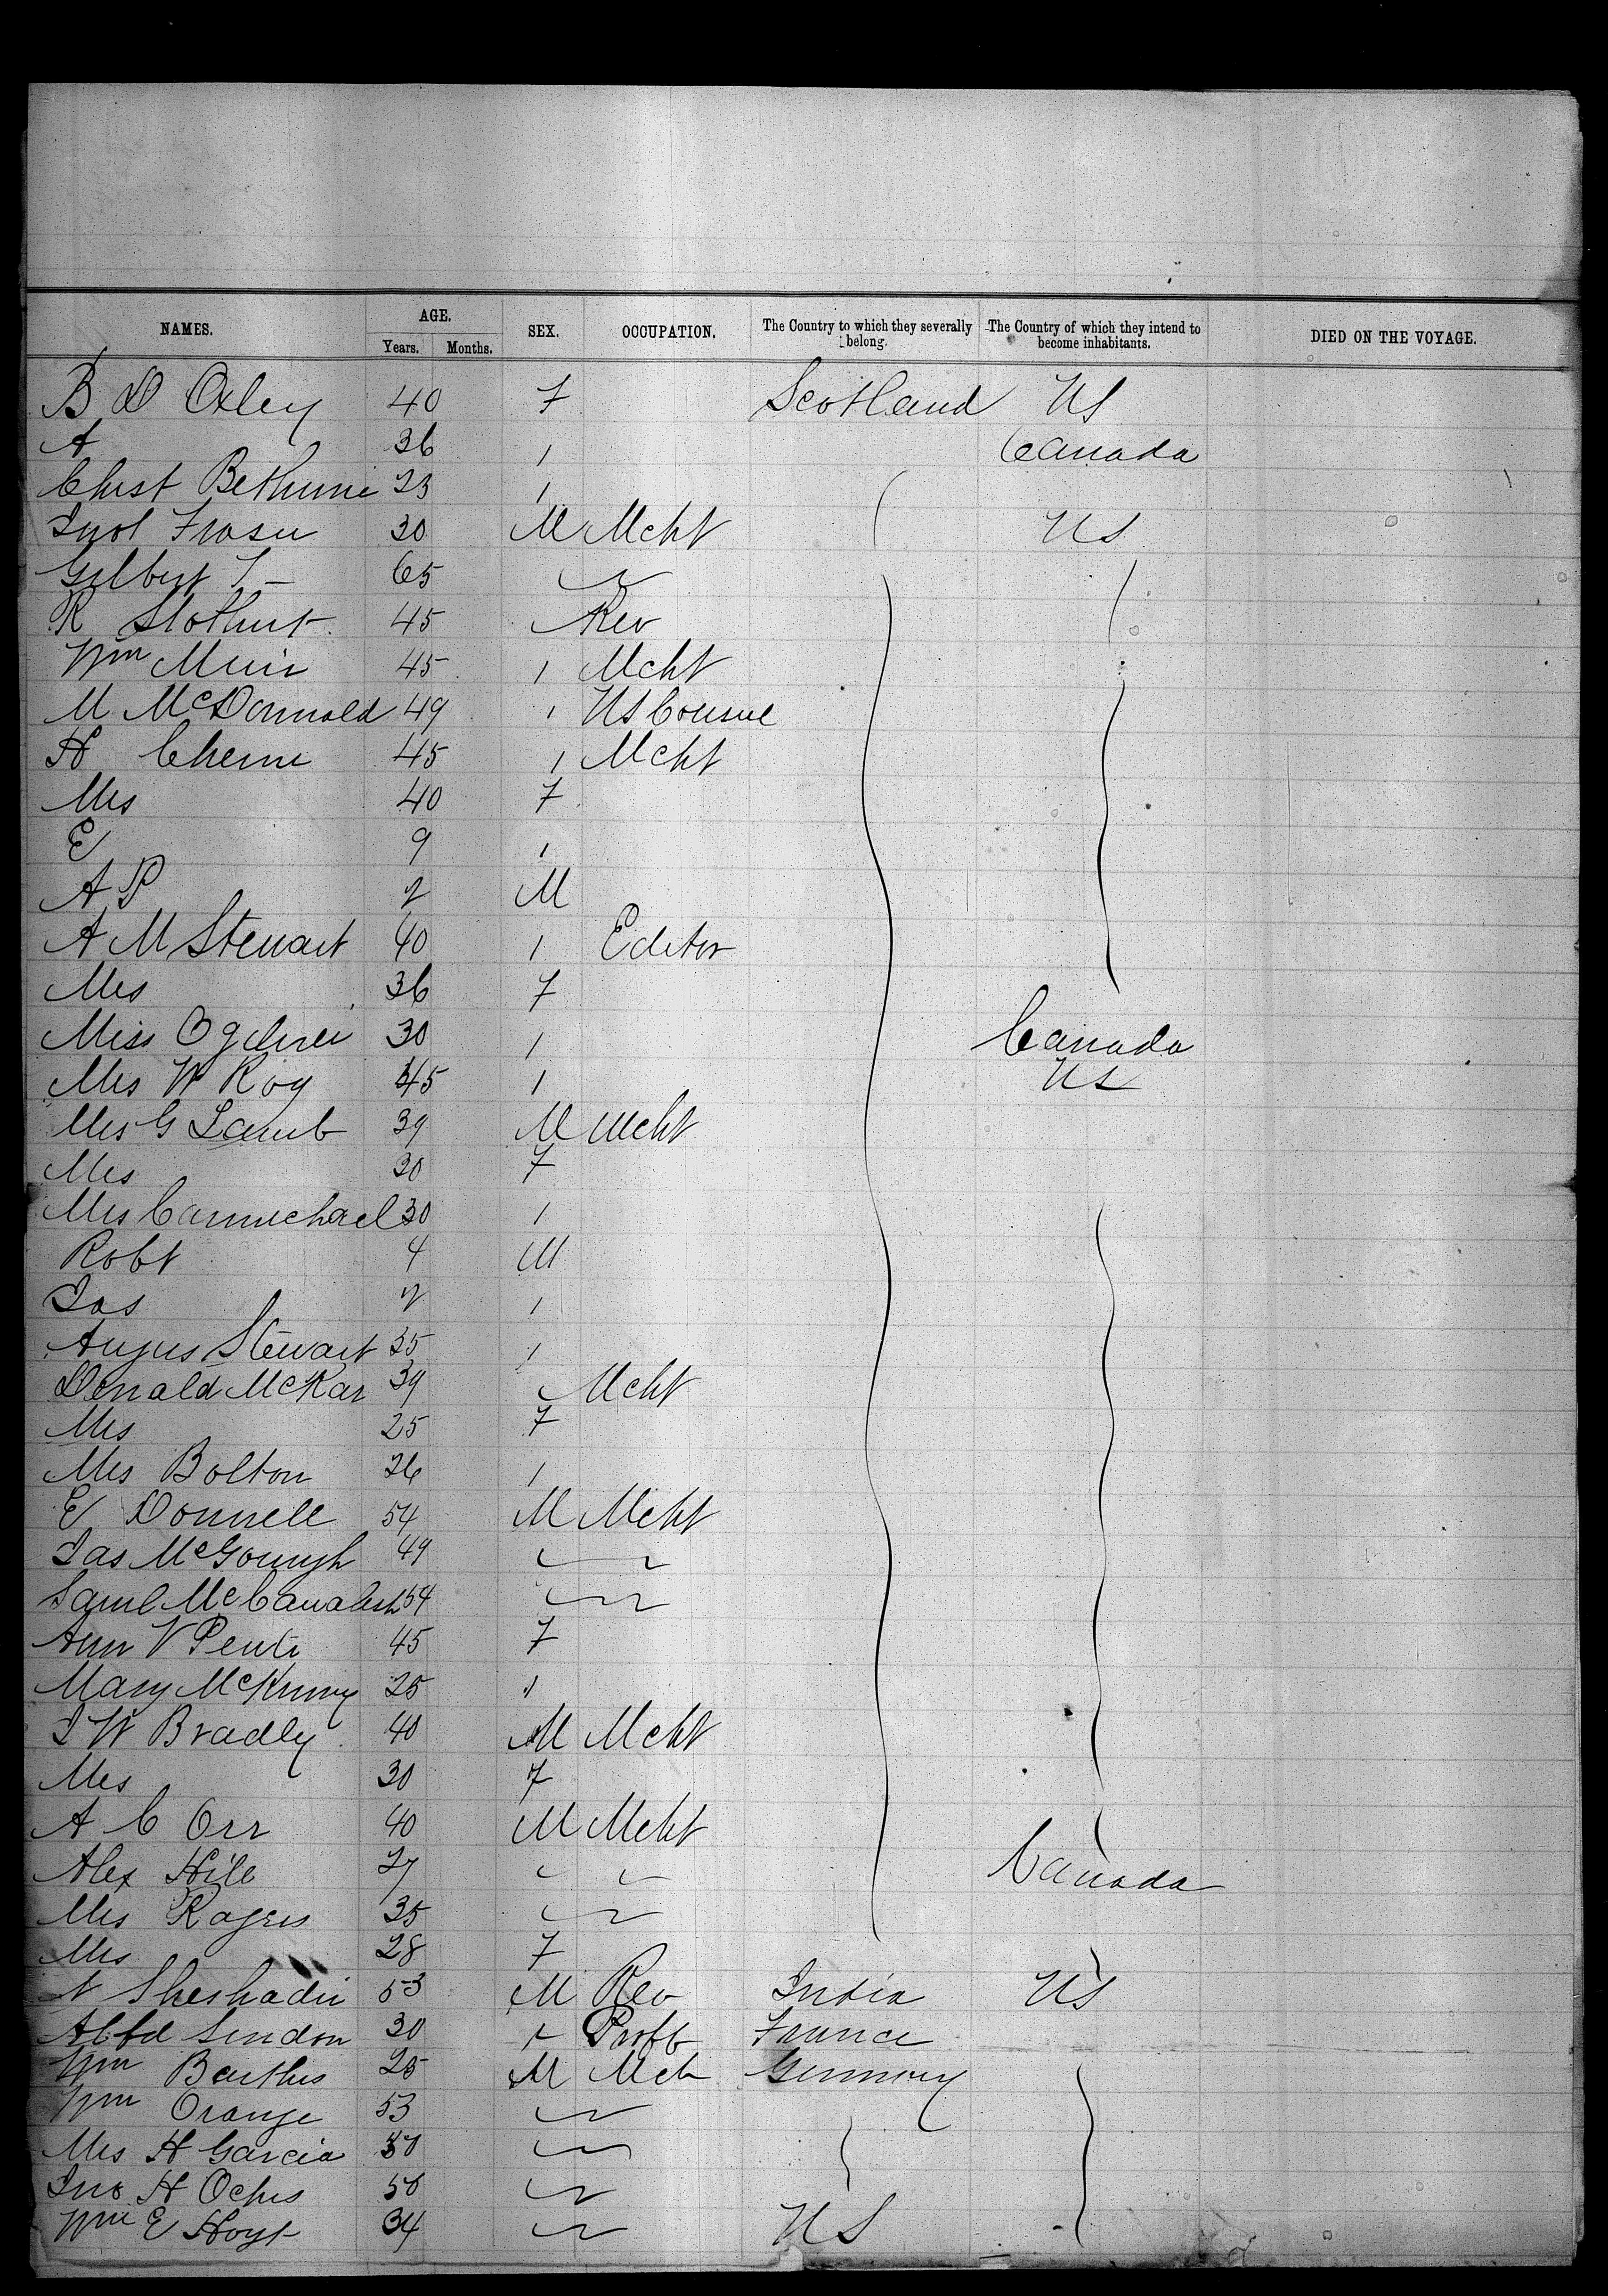 NAMES. AGE. SEX. OCCUPATION. The Country to which they severally belong. The Country of which they intend to become inhabitants. DIED ON THE VOYAGE.
Years. Months.
B D Oxley 40 F Scotland US
A 36 Canada
Christ Bethune 23
Fraser 30 M Mcht US
Gilbert 65
R Stothert 45 Rev
Wm Muir 45 Mcht
M McDonnald 49 US Consul
H Cherrie 45 Mcht
Mrs 40 F
E 9
A P 2 M
A M Stewart 40 Editor
Mrs 36 F
Miss 30 Canada
Mrs W Roy 45 US
Mrs G Lamb 39 M Mcht
Mrs 30 F
Mrs Carmichael 30
Robt 4 M
Jas 2
Angus Stewart 35
Donald McKar 39 Mcht
Mrs 25 F
Mrs Bolton 26
E Donnell 54 M Mcht
Jas McGonnigh 49
Saml 54
Ann V 45 F
Mary McKinny 25
J W Bradly 40 M Mcht
Mrs 30 F
A C Orr 40 M Mcht
Alex Hill 27 Canada
Mrs Rogers 35
Mrs 28 F
N Sheshadri 53 M Rev India US
30 Proff France
Wm 25 M Mch Germany
Wm Orange 53
Mrs H Garcia 30
Jno H Ochs 50
Wm E Hoyt 34 US